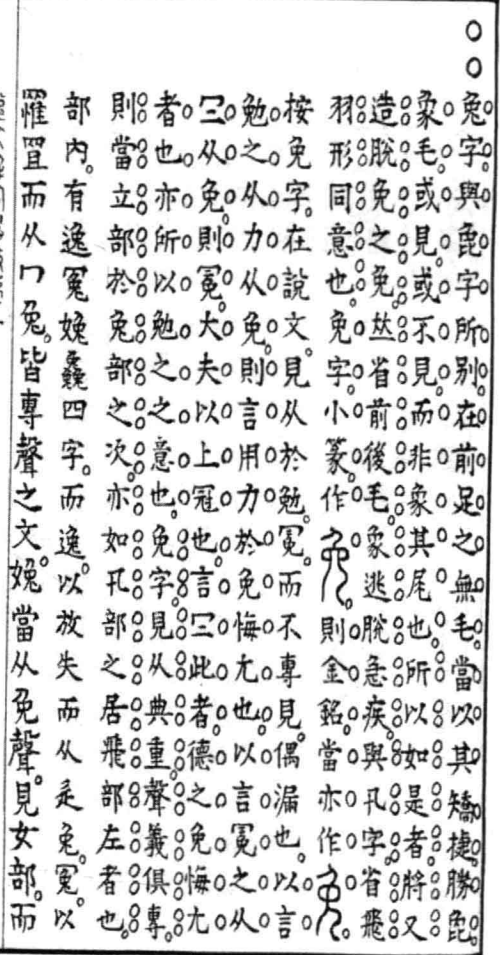 兔字與㲋字所別在前足之無毛當以其矯捷勝㲋
象毛或見或不見而非象其尾也所以如是者將又
造脫免之免𠀤省前後毛象逃脫急疾與卂字省飛
羽形同意也免字小篆作則金銘當亦作
按免字在說文見从於勉冕而不專見偶漏也以言
勉之从力从免則言用力於免悔尤也以言冕之从
冃从免則冕大夫以上冠也言冃此者德之免悔尤
者也亦所以勉之之意也免字見从典重聲義俱專
則當立部於兔部之次亦如卂部之居飛部左者也
部內有逸冤娩㕙四字而逸以放失而从辵兔冤以
罹罝而从冂兔皆專聲之文娩當从免聲見女部而